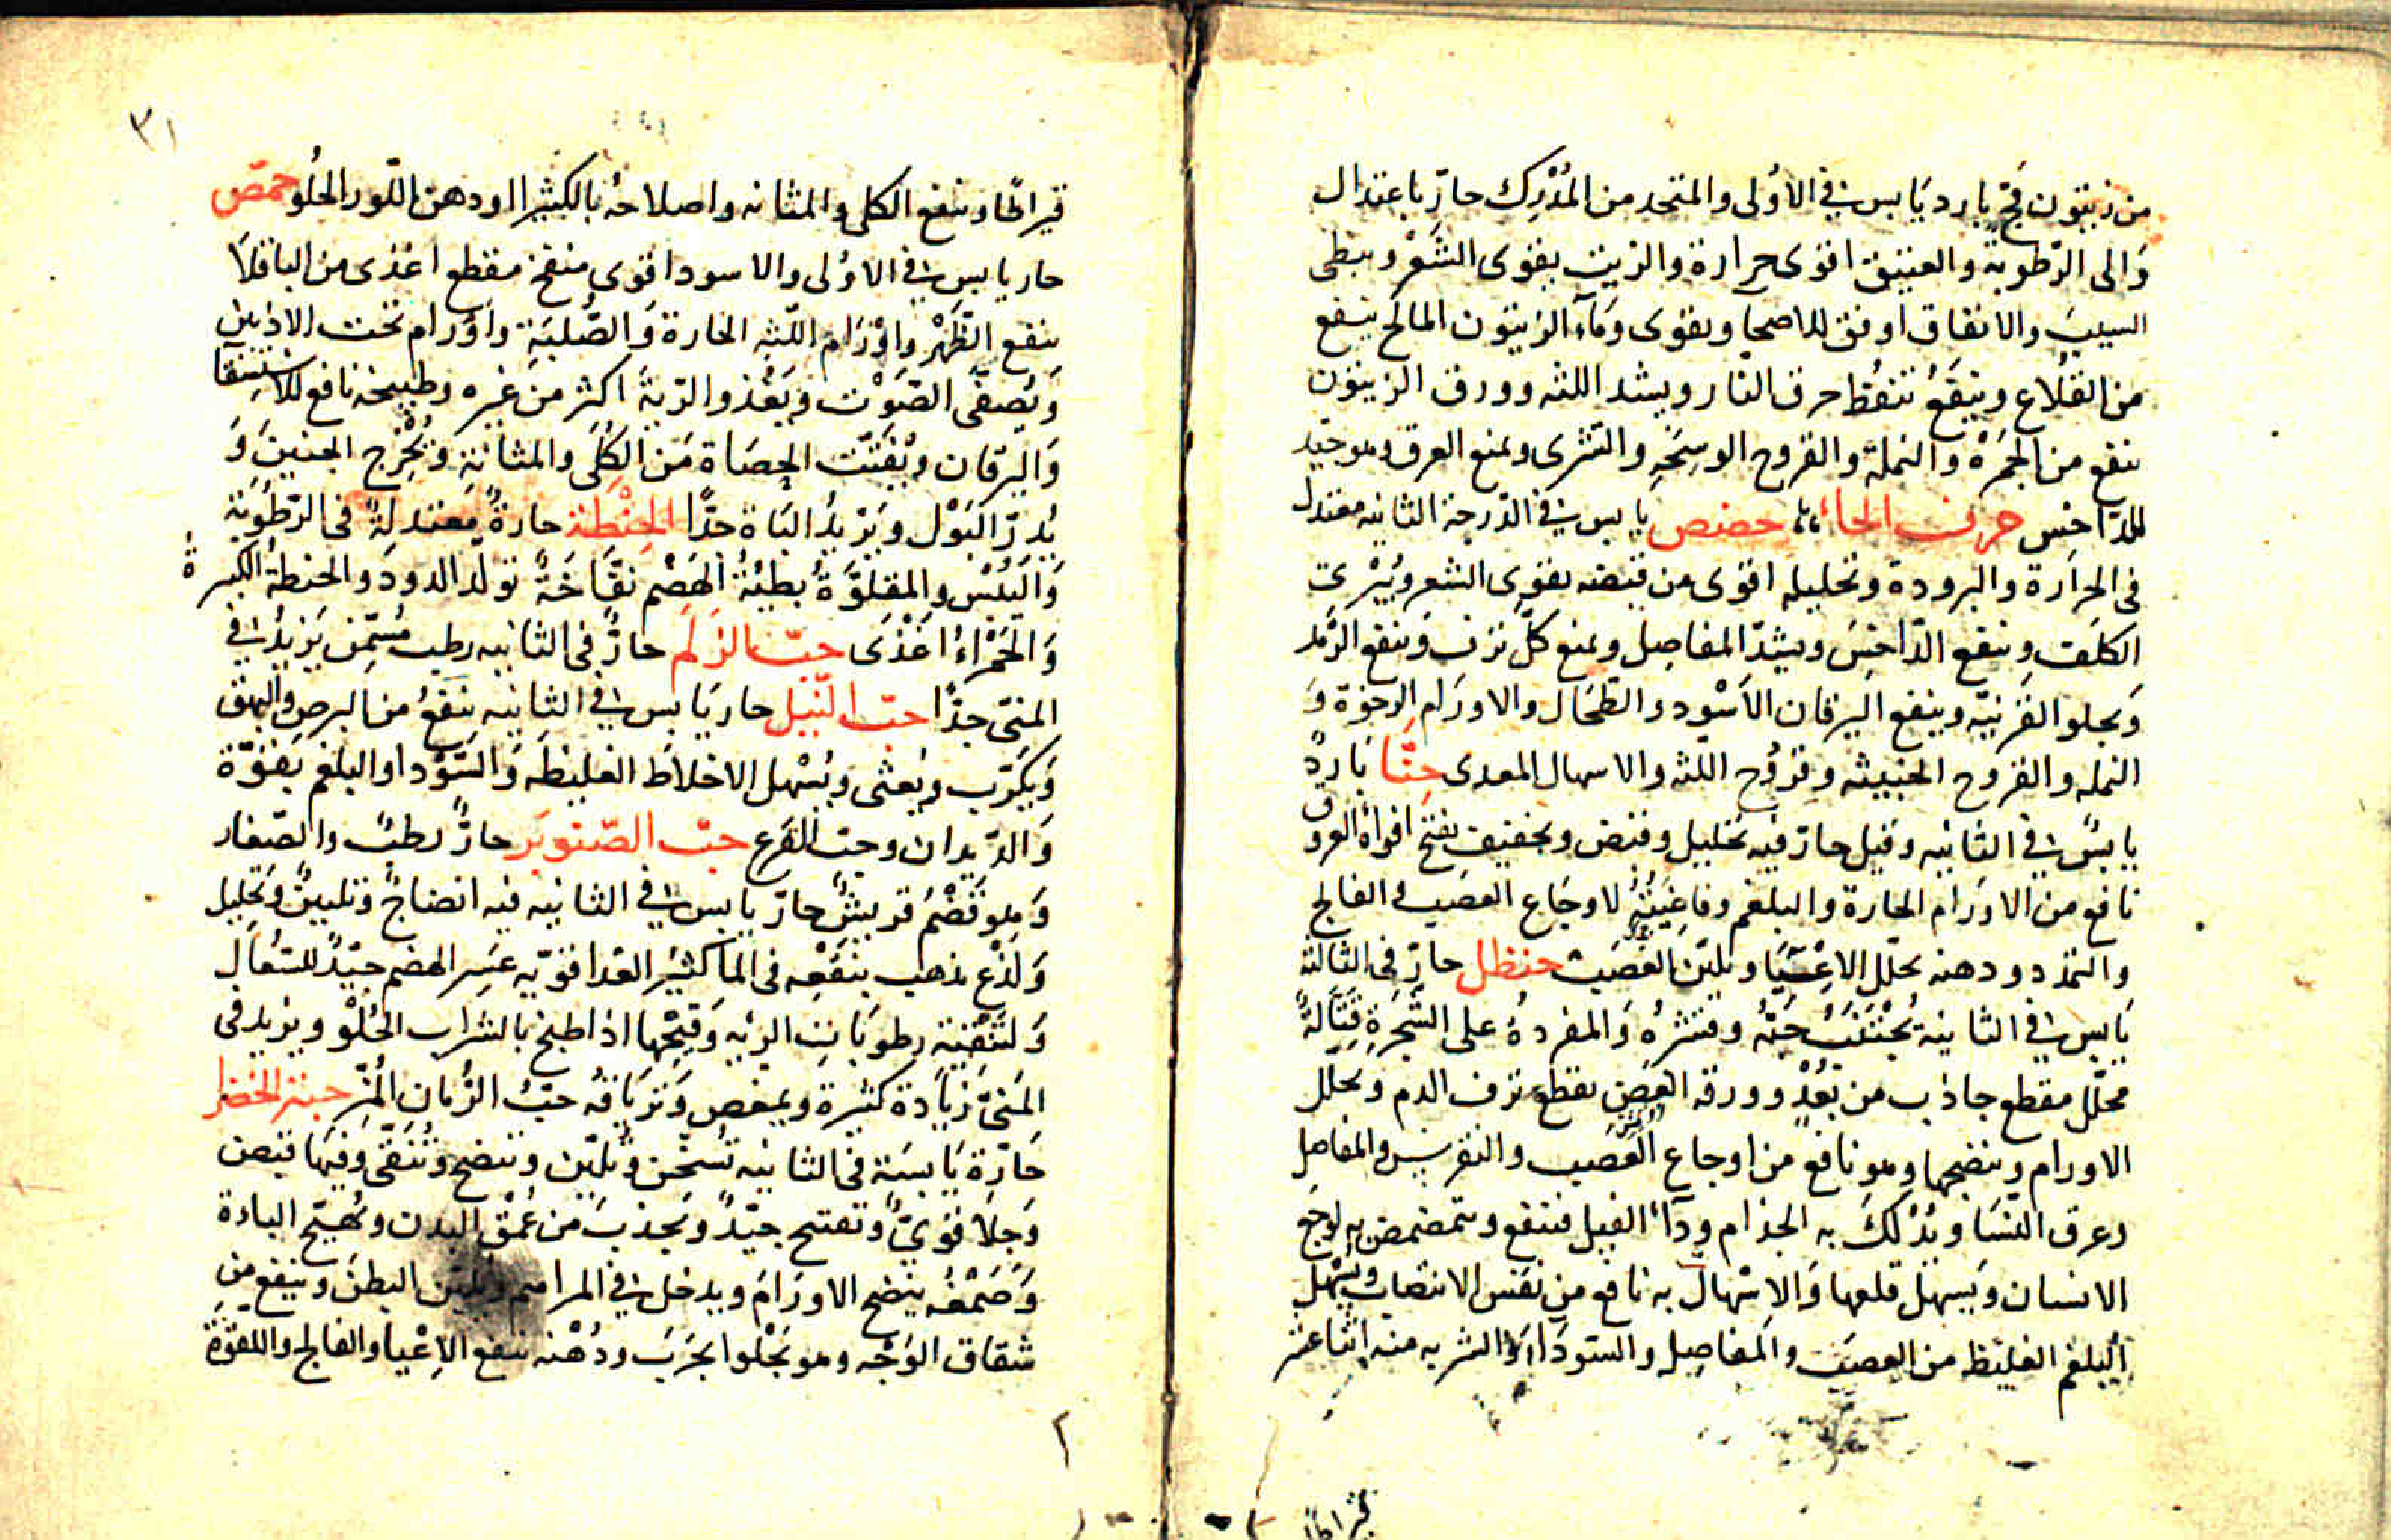 من زيتون فج بارد يابس في الاولى والمتخذ من المُدْرِك حار باعتدال
وَالى الرّطوبة والعتيق اقوى حرارة والزيت يقوى الشَعْر ويبطى
الشيب والانفاق اوفق للاصحا ويقوى وَمَآء الزيتون المالح ينفع
من القُلاع وينفَعُ تنفُّط حرق النار ويشد اللثه وورق الزيتون
ينفع من الحُمرَةْ والنملة والقروح الوسِخَهِ والشرى ويمنع العرق وهو جيّد
للدّاحس حرف الحاء حضض يابس في الدّرجة الثانيه معتدل
فى الحرارة والبرودة وتحليله اقوى من قبضه يقوى الشعر ويُبْرى
الكلَف وينفع الدّاحِسَ ويشدّ المفاصِل ويمنع كلّ نزف وَينفع الرَّمد
وَيجلو القرنيّه وينفع اليرقان الاَسْود والطّحال والاورام الرخوة وَ
النمله والقروح الخبيثه وقرُوح اللثه والاسهال المعدى حنّا باردٌ
يابسٌ في الثانيه وقيل حارّ فيه تحليل وقبض وتجفيف يفتح افواه العروق
نافع من الاورَام الحارة والبلغم وفاغِيَتُهُ لاوجَاع العصَب والفالج
والتمدد ودهنه يحلّل الاِعْيَآء ويليّن العَصَب حنظل حارّ فى الثالثة
يَابس في الثانية يُجْتَنَبُ حَبّه وقشرُه وَالمفردةُ على الشَّجَرَةِ قَتّالةٌ
محلّل مقطع جاذب من بُعْدٍ وورقه الغض يقطع نزف الدم ويحلل
الاورام وينضجها وهو نافع من اوجاع العَصَب والنقرس والمفاصل
وعرق النّسَا ويُدْلَكَ به الجذام ودآء الفيل فينفع ويتمضمض به لوجَع
الاسنان ويسهل قلعها وَالاسْهال به نافع من نَفَس الانتصاب ويُسْهل
البلغم الغليظ من العصَب والمفاصِل والسّودَاء والشربه منه اثنا عشر
قيراطا
قيراطا وينفع الكلى والمثانه واصلاحُه بالكثيرا او دهن اللّوز الحلُو حمّص
حار يابس في الاوْلى والاسود اقوى منفخ مقطع اغذى من الباقلاَ
ينفع الظَهْر واوْرَام اللّثه الحارة وَالصُّلبَة وَاوْرام تحت الاذنين
وَيُصفّى الصَوْت ويَغْذُو الرّيةَ اكثر من غيره وطبيخه نافع للاستِسْقآ
وَاليَرقان ويُفتّت الحصَاة مَن الكِلَى والمثانةِ وَيُخْرِج الجنينَ وَ
يُدِرّ البَوْل وَيَزيدُ البَاة جدًّا الحِنْطة حارةٌ معتدلةٌ فى الرّطُوبَة
وَاليُبْس والمقلوَّةُ بطيئةُ الهَضْم نفّاخَةٌ تولّد الدود وَالحنطةُ الكبيرةُ
وَالحَمْراءُ اغْذَى حبّ الزَلَم حارٌّ فى الثانيه رطب مُسَمّن يَزيدُ في
المنىّ جدّاً حبّ النّيل حار يَابس في الثانيه ينفعُ من البرص والبهق
وَيُكَرّب ويُغثى ويُسْهل الاخلاَط الغليظه وَالسّوْدا والبلغم بقوّة
وَالدّيدان وحبّ القرع حبّ الصّنوبَر حارٌّ رطبٌ والصّغار
وَهو قَضْمُ قريشٌ حارّ يابس في الثانيه فيه انضاجٌ وتلبينٌ وتحليل
وَلذْع يذهب بنَقْعه فى المآ كثيرُ الغدا قوّيه عَسِر الهضم جيّدٌ للسّعَال
وَلتَنْقية رطوبَات الرئه وَقَيْحها اذا طبخ بالشراب الحُلْو ويزيد فى
المَنىّ زيَادة كثيرة ويمغص وَتريَاقه حَبّ الرُّمان المُزّ حبّة الخضرا
حَارّة يَابسَة فى الثانيه تُسَخّن وتُليّن وتنضج وتُنَقّى وَفيهَا قبض
وَجلاَ قوىٌّ وتفتيح جيّدٌ ويجذبَ من عُمْق البدن ويُهَيّج الباءة
وَصَمْغُه ينضج الاورَامَ ويدخل في المراهم ويليّن البطن وينفع من
شقاق الوَجْه وهو يَجْلوا الجَرَبَ ودُهْنه ينفع الاِعْيا والفالج واللقوَة
٣١